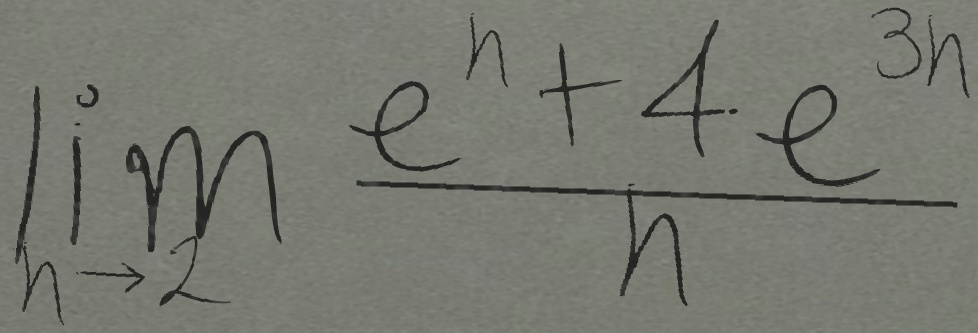 \lim_{h \to 2} \frac{e^{h} + 4 \cdot e^{3h}}{h}